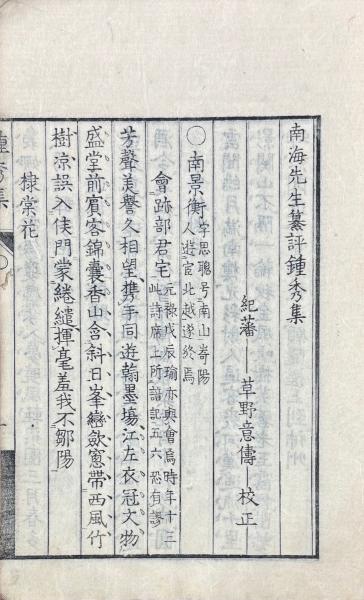 南海先生纂評鍾秀集
紀藩 草野意儔 校正
〇南景衡字思聰号南山嵜陽
人遊宦北越遂終焉
會跡部君宅元祿戊辰瑜亦與會焉時年十三
此詩席上所諳記五六恐有謬
芳聲美譽久相望携手同遊翰墨塲江左衣冠文物
盛堂前賓客錦囊香山含斜日峯巒歛窻帶西風竹
樹凉誤入侯門蒙綣繾揮毫羞我不鄒陽
棣棠花